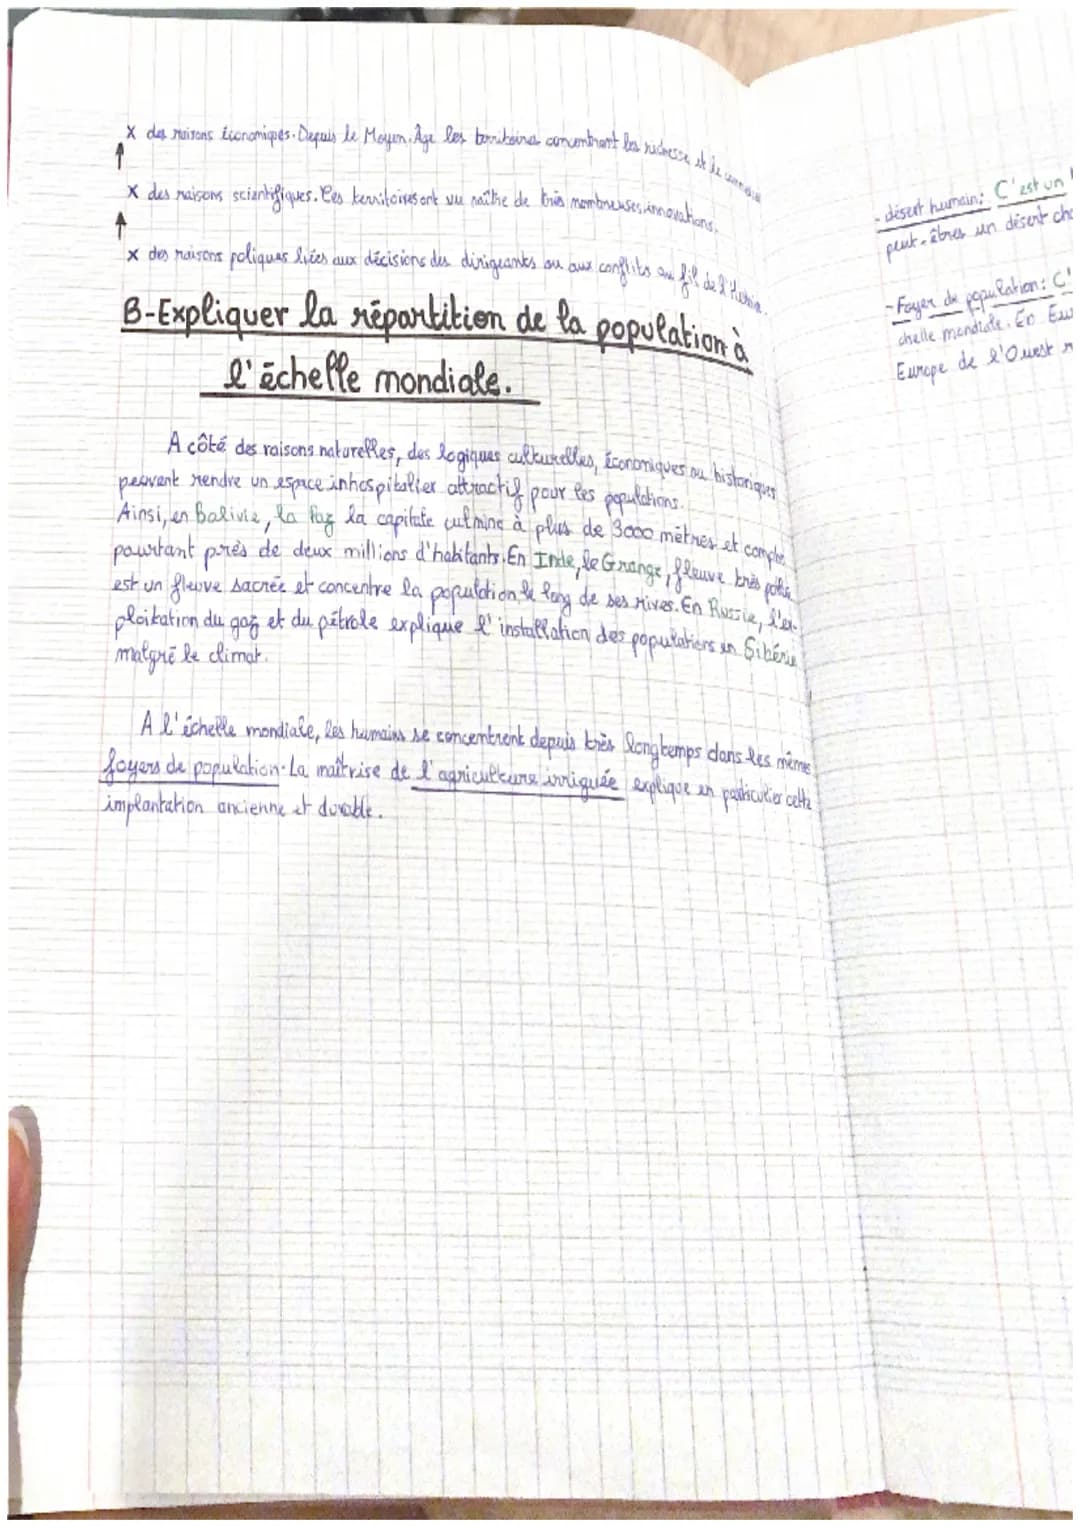 x des raisons économiques. Depuis le Moyen. Âge les territoires concentrent les richesse et le
x des raisons scientifiques. Ces territoires ont vu naître de très nombreuses innovations.
x des raisons poliques liées aux décisions des dirigeants ou aux conflits au fil de l'Histoire.
B-Expliquer la répartition de la population à
l'échelle mondiale.
A côté des raisons naturelles, des logiques culturelles, économiques ou historiques
peuvent rendre un espace inhospitalier attractif pour les populations.
Ainsi, en Bolivie, la Paz la capitale culmine à plus de 3000 mètres et compte
pourtant près de deux millions d'habitants. En Inde, le Grange, fleuve très pollué
est un fleuve sacrée et concentre la population le long de ses rives. En Russie, l'ex-
ploitation du gaz et du pétrole explique l'installation des populations en Sibérie
malgré le climat.
A l'échelle mondiale, les humains se concentrent depuis très longtemps dans les mêmes
foyers de population. La maîtrise de l'agriculture irriguée explique en particulier cette
implantation ancienne et durable.
- désert humain: C'est un
peut-êtres un désert
- Foyer de population: C'
chelle mondiale. En
Europe de l'Ouest